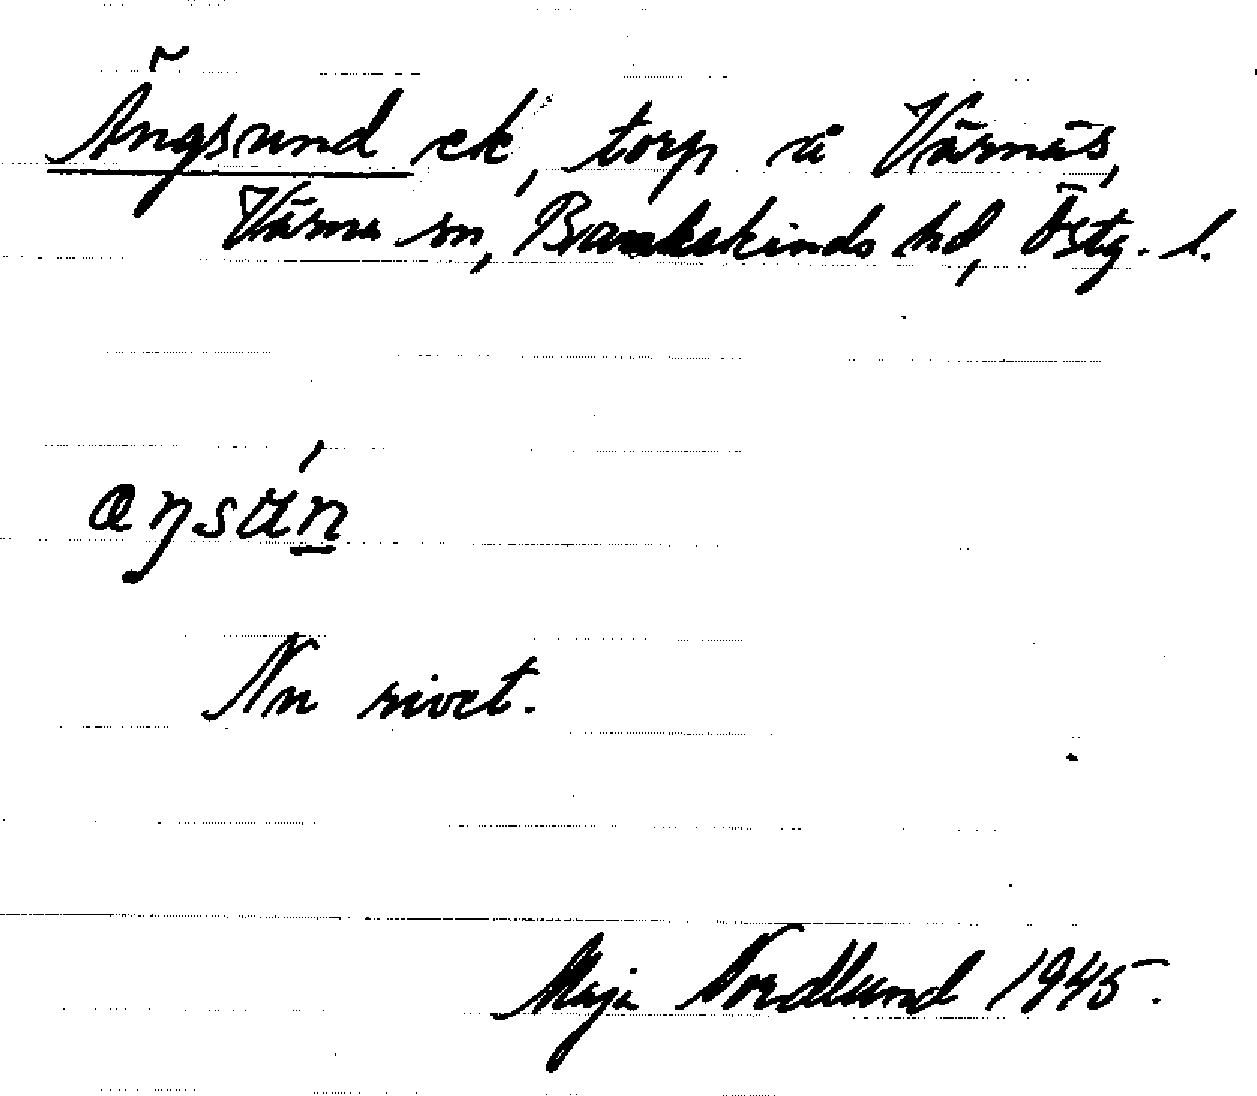 Ängsund ek, torp å Värnäs,
Värna sn, Bankekinds hd, Östg. l.
æŋsún
Nn rivet.
Maja Nordlund 1945.